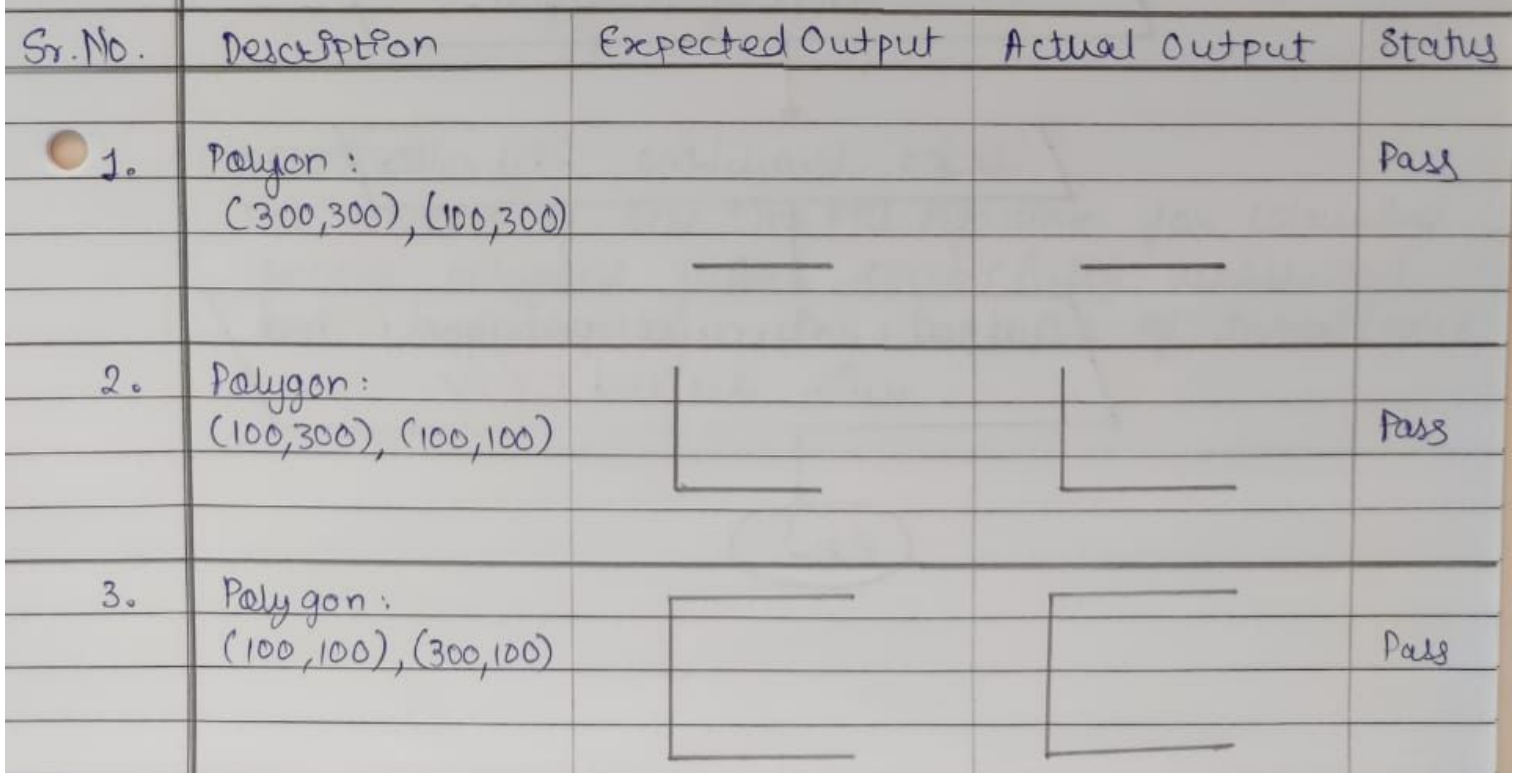 Sr.No. Description Expected Output Actual Output Status
1. Polyon : Pass
(300,300), (100,300)
2. Polygon :
(100,300), (100,100) Pass
3. Polygon :
(100,100), (300,100) Pass